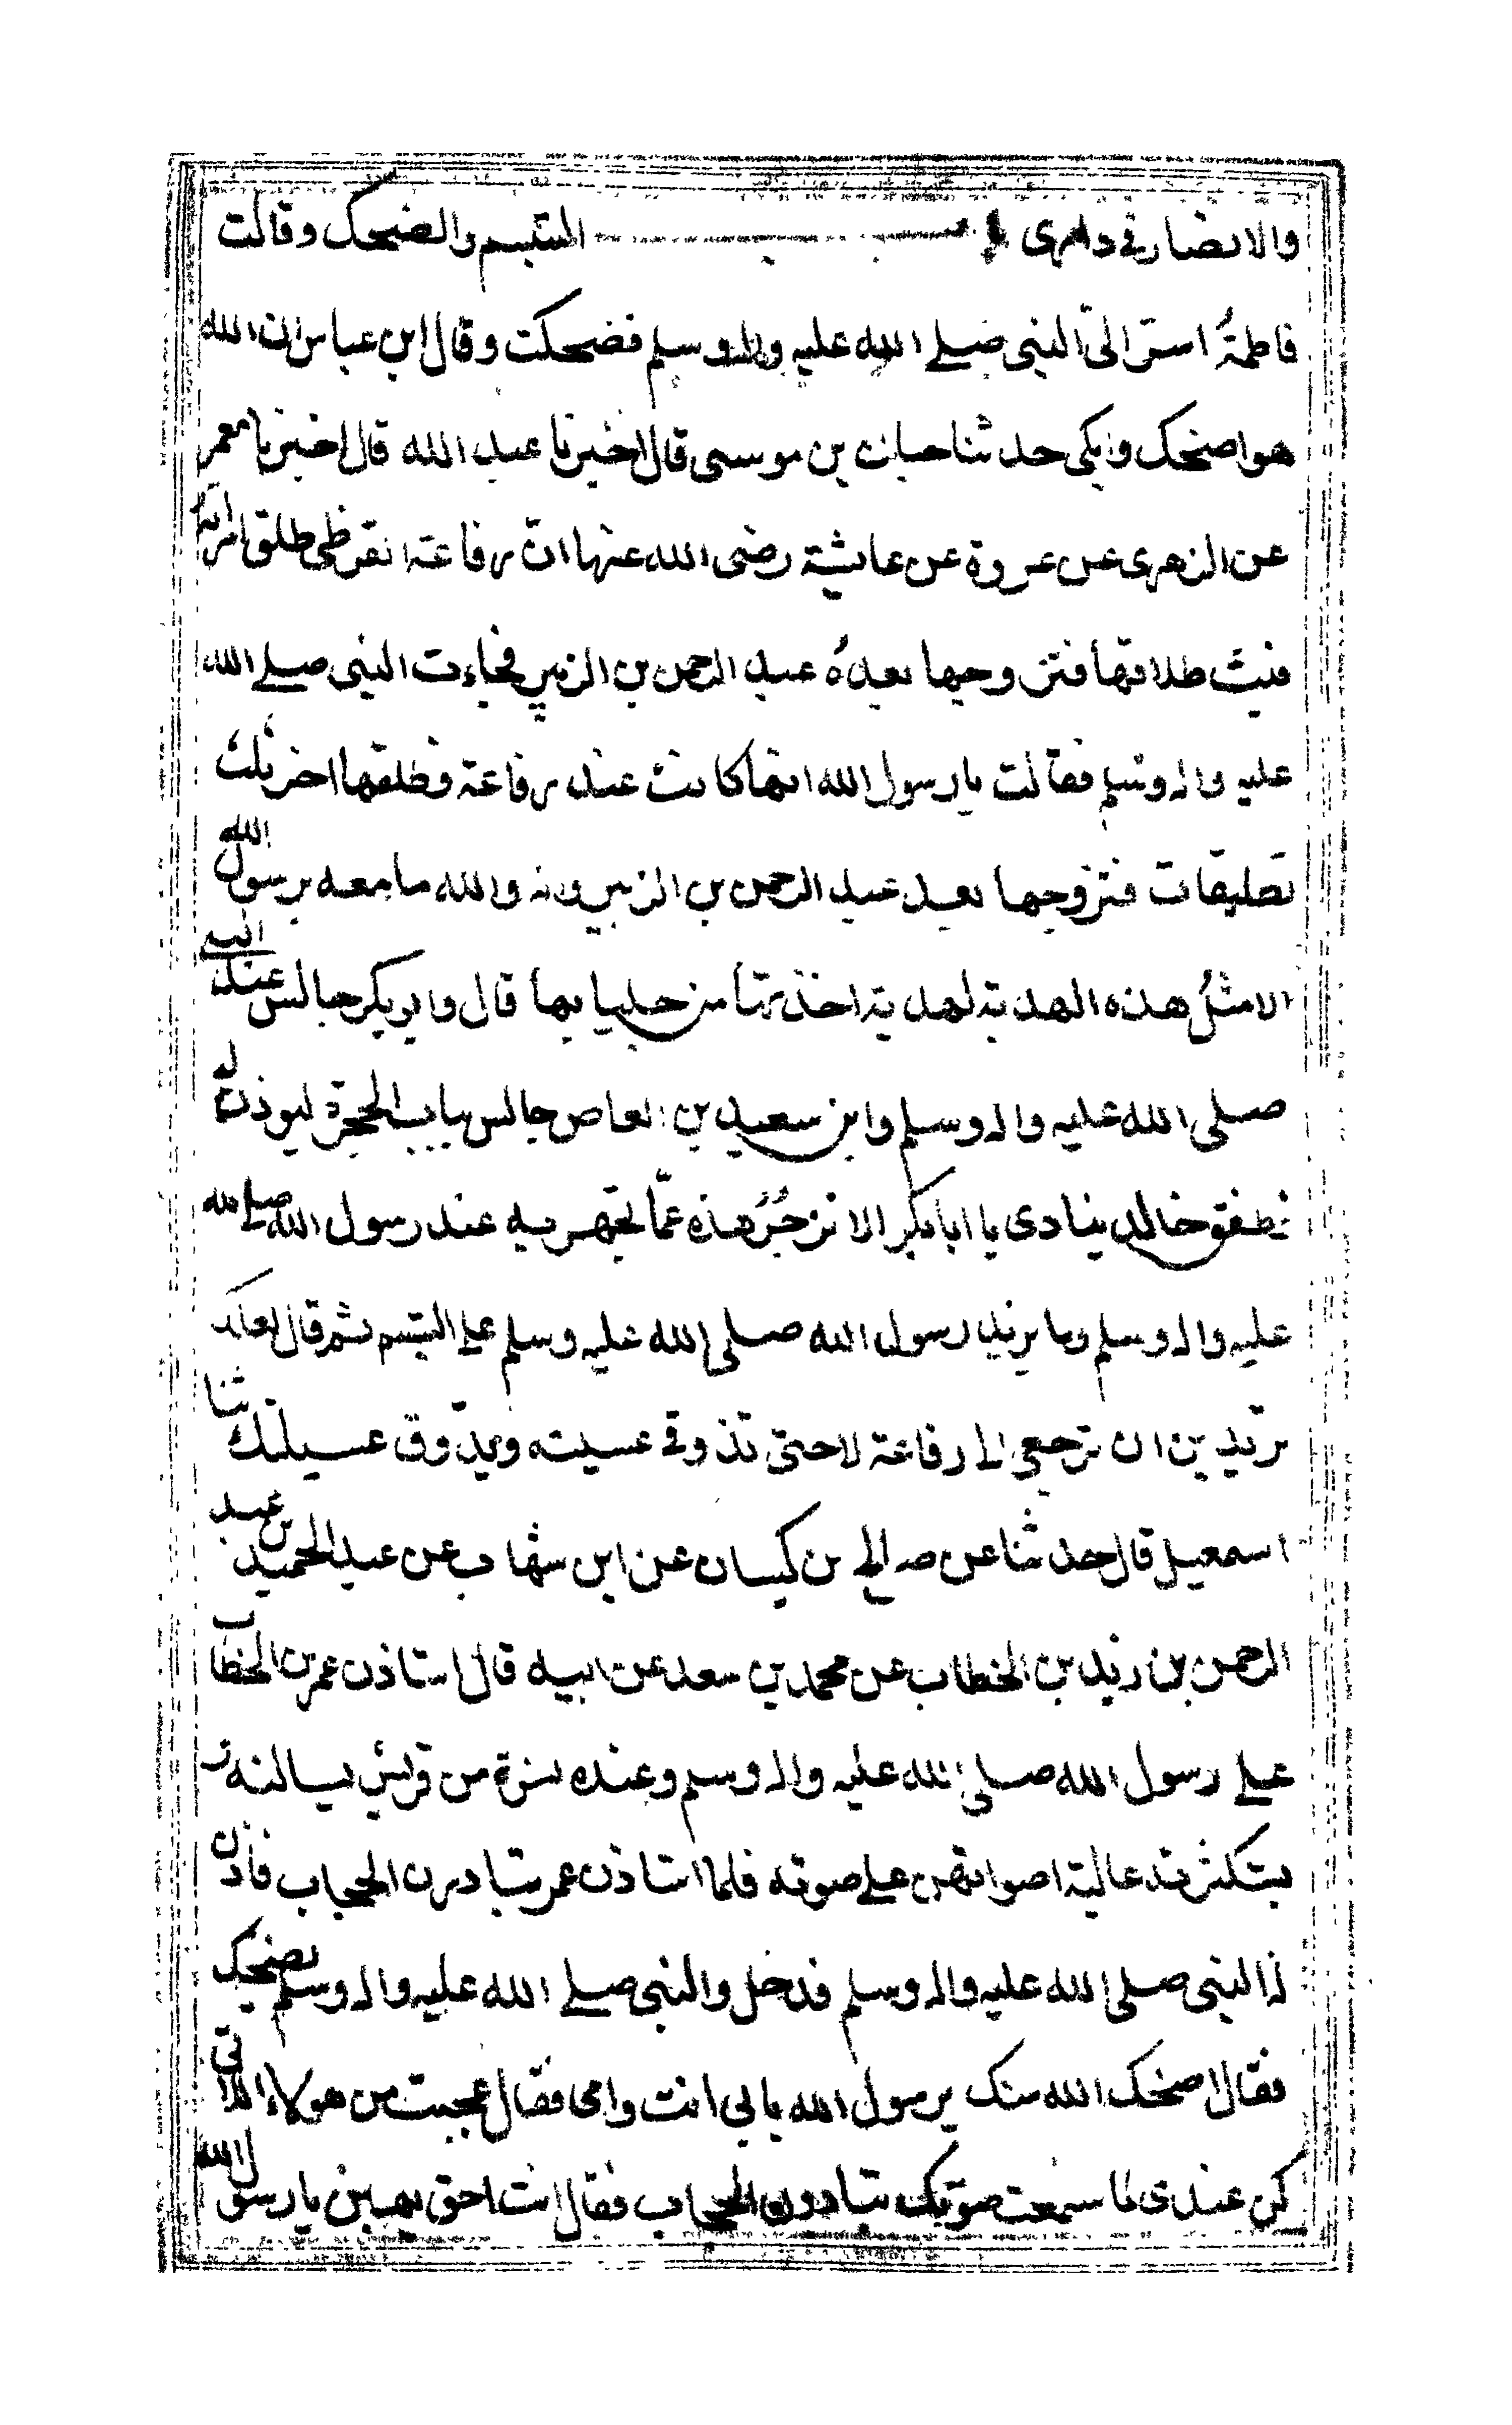 والانصار في داري باب التبسم والضحك وقالت
فاطمة اسر الى النبي صلے الله عليه واله وسلم فضحكت وقال ابن عباس ان الله
هو اضحك وابكى حدثنا حبان بن موسى قال اخبرنا عبد الله قال اخبرنا معمر
عن الزهرى عن عروة عن عايشة رضى الله عنها ان رفاعة القرظى طلق امراته
فبت طلاقها فتزوجها بعده عبد الرحمن بن الزبير فجاءت النبى صلے الله
عليه واله وسلم فقالت يا رسول الله انها كانت عند رفاعة فطلقها اخر ثلث
تطليقات فتزوجها بعد عبد الرحمن بن الزبير وانه والله ما معه يرسول الله
الا مثل هذه الهدبة لهدبة اخذتها من جلبابها قال وابو بكر جالس عند النبى
صلى الله عليه واله وسلم وابن سعيد بن العاص جالس بباب الحجرة ليوذن له
فطفق خالد ينادى يا ابا بكر الا تزجر هذه عما تجهر به عند رسول الله صلے الله
عليه واله وسلم وما يزيد رسول الله صلى الله عليه وسلم على التبسم ثم قال لعلك
تريدين ان ترجعى الے رفاعة لا حتى تذوقے عسيته ويذوق عسيلتك ثنا
اسمعيل قال حدثنا عن صالح بن كيسان عن ابن شهاب عن عبد الحميد بن عبد
الرحمن بن زيد بن الخطاب عن محمد بن سعد عن ابيه قال استاذن عمر بن الخطاب
علے رسول الله صلى الله عليه واله وسلم وعنده نسوة من قريش يسالنه و
يستكثرنه عالية اصواتهن علے صوته فلما استاذن عمر تبادرن الحجاب فأذن
له النبى صلى الله عليه واله وسلم فدخل والنبى صلے الله عليه واله وسلم يضحك
فقال اضحك الله سنك يرسول الله بابى انت وامى فقال عجبت من هولاء اللاتى
كن عندى لما سمعت صوتك تبادرن الحجاب فقال انت احق يهبن يا رسول الله